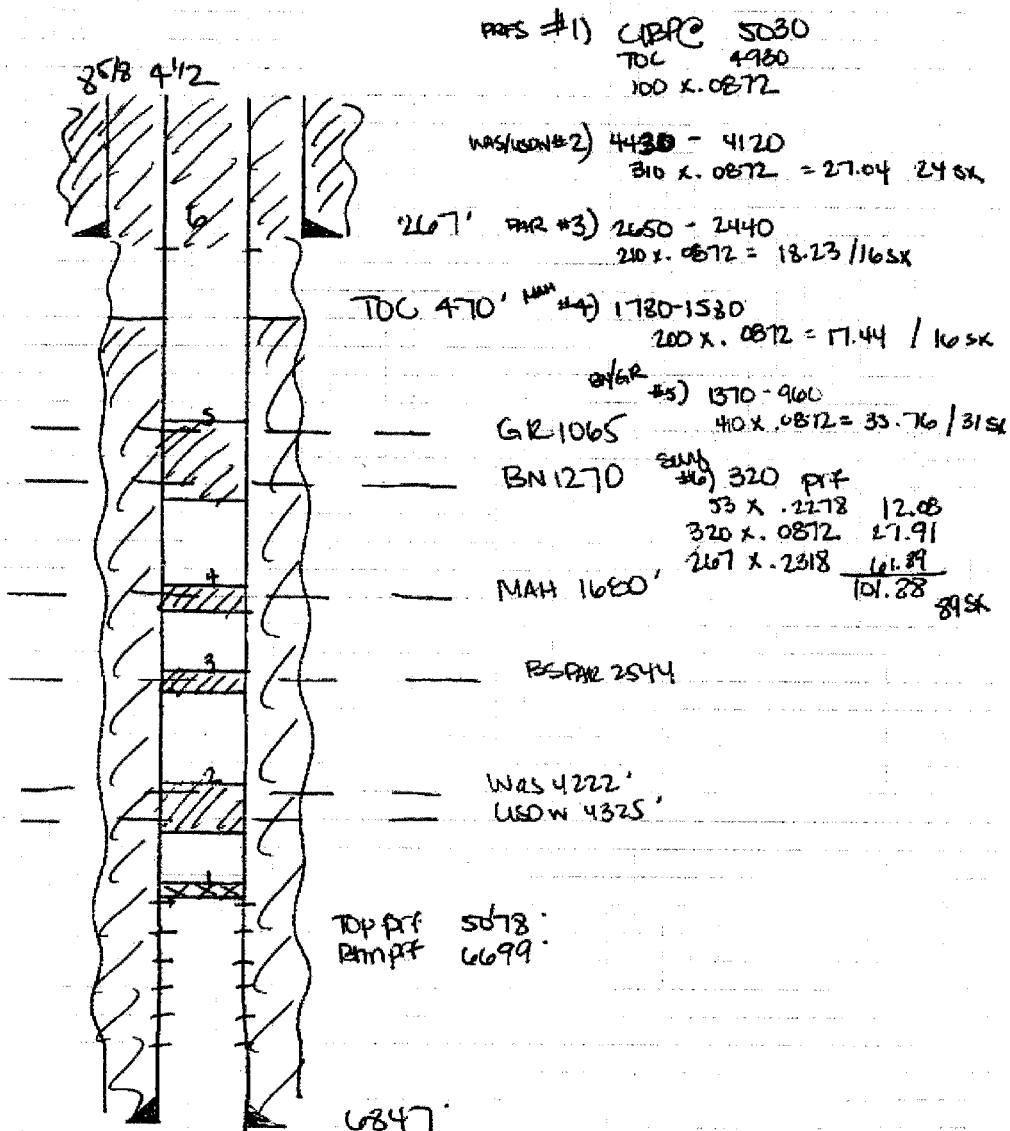 PRFS #1) CIBP@ 5030
TOC 4930
100 x .0872
8 5/8 4 1/2
WAS/USDW #2) 4430 - 4120
310 x .0872 = 27.04 24 sx
6
267' PAR #3) 2650 - 2440
210 x .0872 = 18.23 / 16 sx
TOC 470' MAH #4) 1780-1580
200 x .0872 = 17.44 / 16 sx
BN/GR #5) 1370 - 960
410 x .0872 = 35.76 / 31 sx
5
GR 1065
BN 1270
Surf #6) 320 prf
53 x .2278 12.08
320 x .0872 27.91
267 x .2318 61.89
101.88
89 sx
4
MAH 1680'
3
BSPAR 2544
2
WAS 4222'
USDW 4325'
1
Top prf 5078'
Btm prf 6699'
6847'